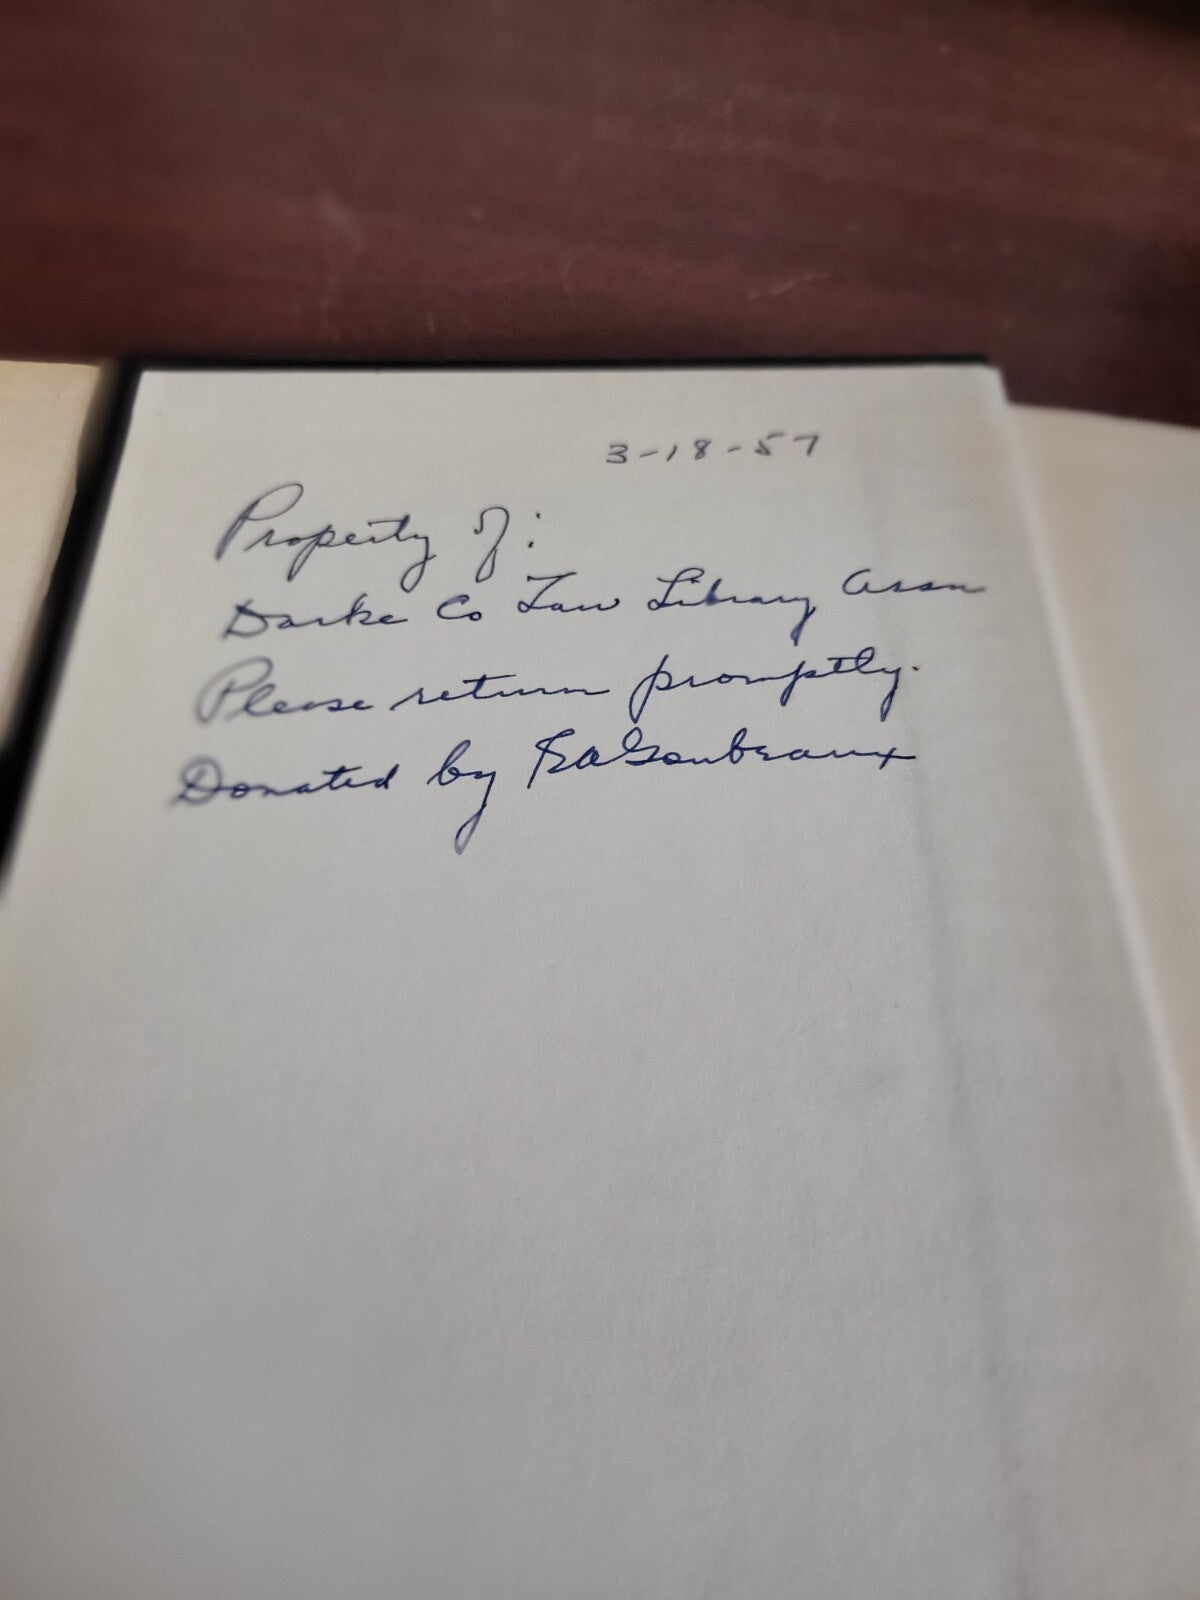 3-18-57
Property of:
Darke Co Law Library Assn
Please return promptly.
Donated by EAGoubeaux